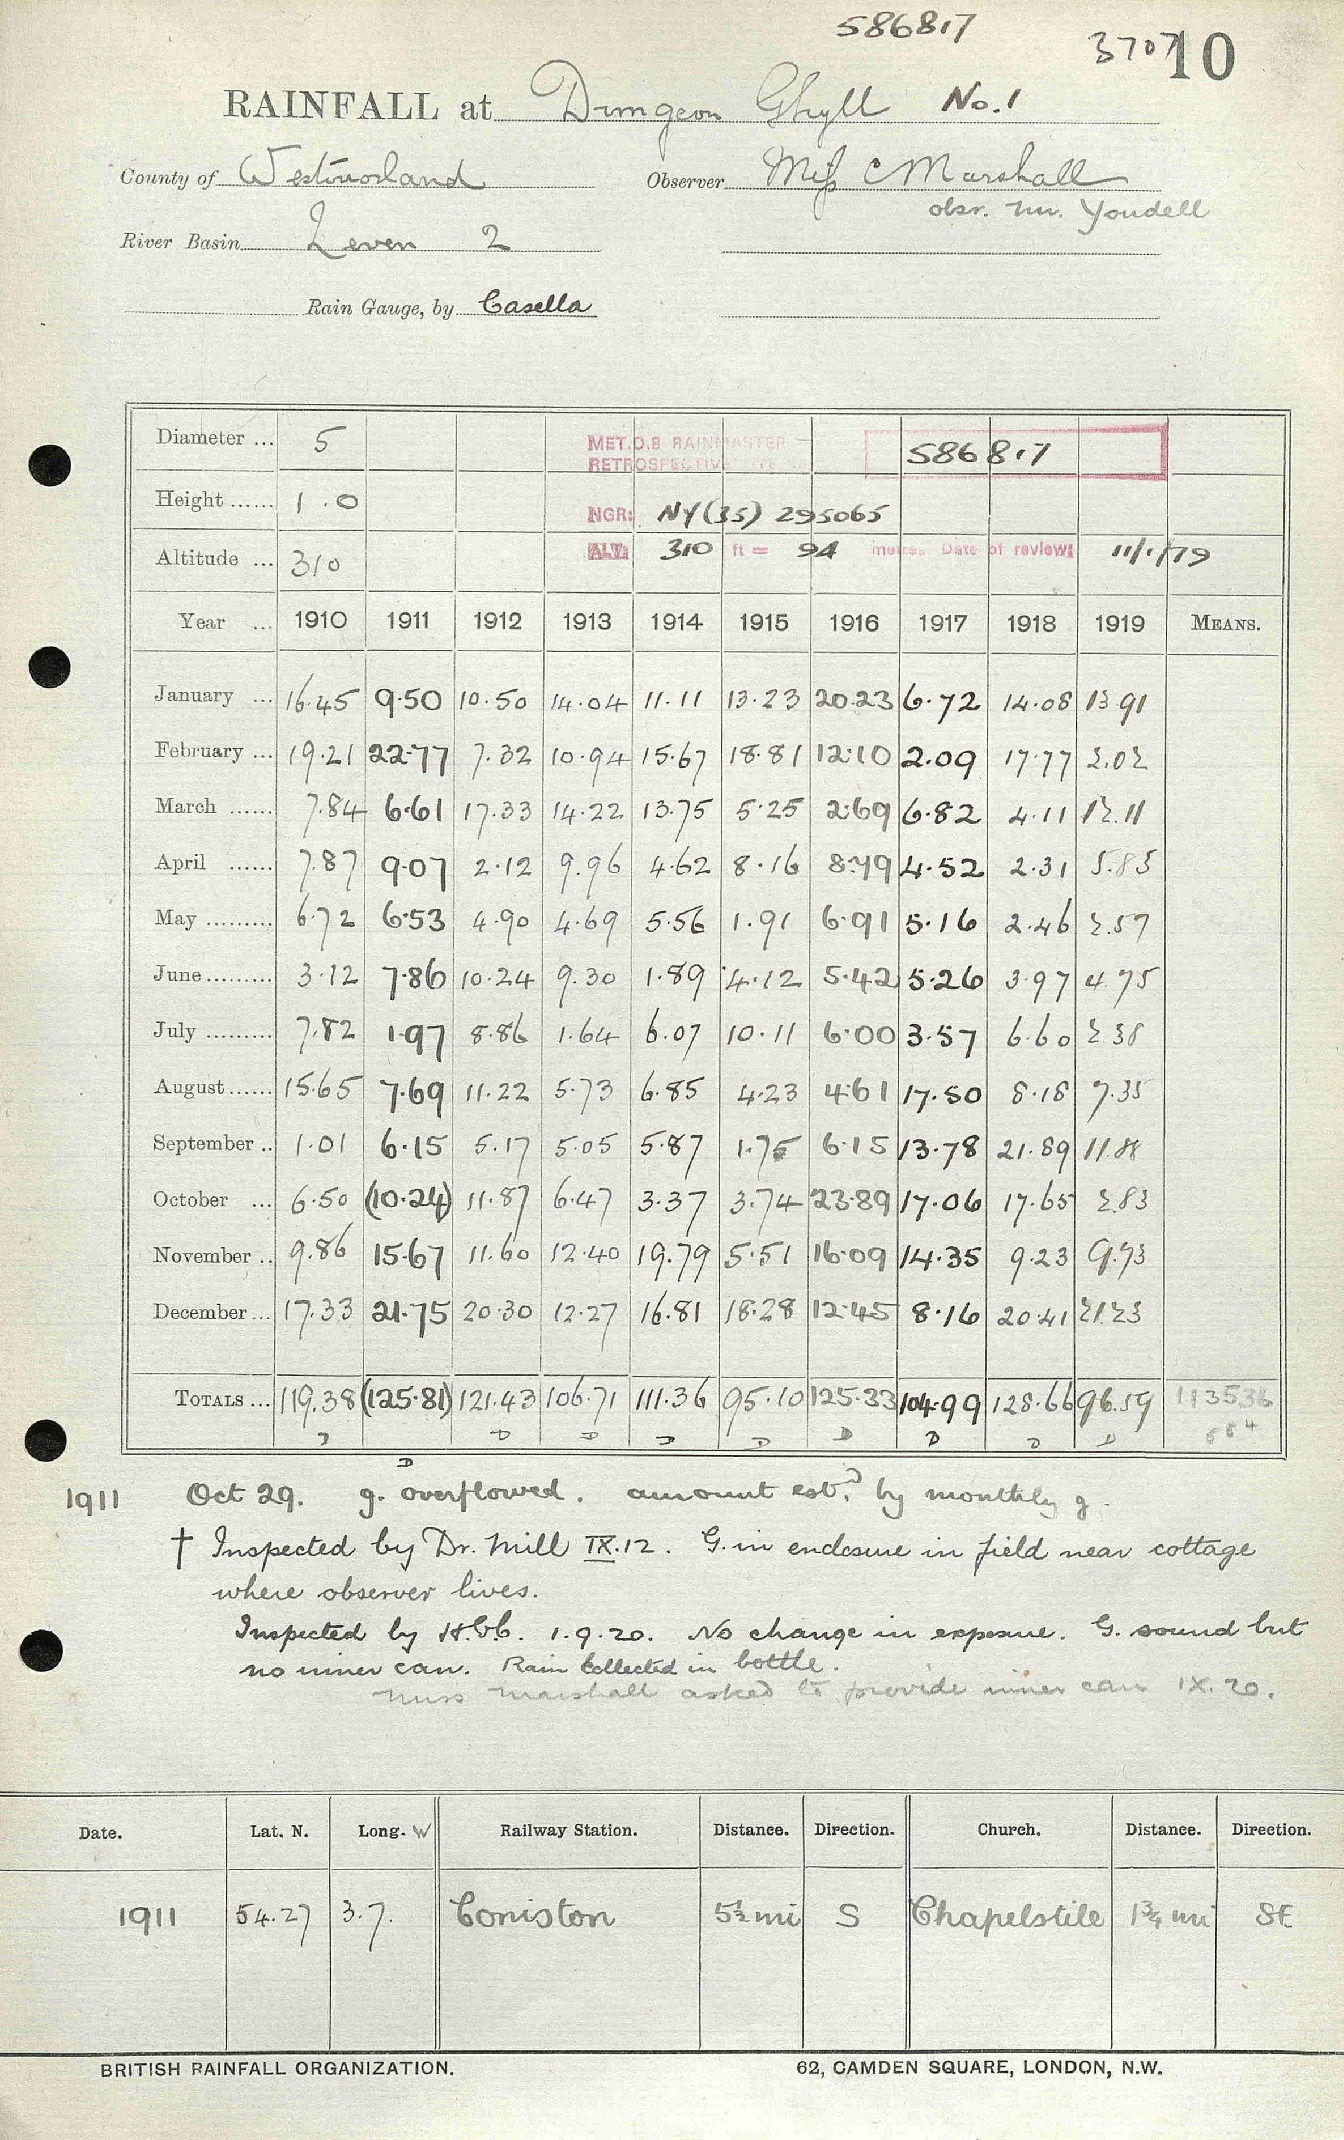 586817
3707 10
RAINFALL at Dungeon Ghyll No. 1
County of Westmorland Observer Miss C Marshall
obsr. Mr. Youdell
River Basin Leven 2
Rain Gauge, by Casella
Diameter ... 5 MET.O.8 RAINMASTER RETROSPECTIVE 5868.17
Height ...... 1.0 NGR: NY (35) 295065
Altitude ... 310 ALT: 310 ft = 94 metres Date of review: 11/1/79
Year ... 1910 1911 1912 1913 1914 1915 1916 1917 1918 1919 MEANS.
January ... 16.45 9.50 10.50 14.04 11.11 13.23 20.23 6.72 14.08 13.91
February ... 19.21 22.77 7.32 10.94 15.67 18.81 12.10 2.09 17.77 2.02
March ...... 7.84 6.61 17.33 14.22 13.75 5.25 2.69 6.82 4.11 12.11
April ...... 7.87 9.07 2.12 9.96 4.62 8.16 8.79 4.52 2.31 5.85
May ......... 6.72 6.53 4.90 4.69 5.56 1.91 6.91 5.16 2.46 2.57
June ......... 3.12 7.86 10.24 9.30 1.89 4.12 5.42 5.26 3.97 4.75
July ......... 7.82 1.97 8.86 1.64 6.07 10.11 6.00 3.57 6.60 2.38
August ...... 15.65 7.69 11.22 5.73 6.85 4.23 4.61 17.50 8.18 7.35
September .. 1.01 6.15 5.17 5.05 5.87 1.75 6.15 13.78 21.89 11.88
October ... 6.50 (10.24) 11.87 6.47 3.37 3.74 23.89 17.06 17.65 2.83
November .. 9.86 15.67 11.60 12.40 19.79 5.51 16.09 14.35 9.23 9.73
December ... 17.33 21.75 20.30 12.27 16.81 18.28 12.45 8.16 20.41 21.23
TOTALS ... 119.38 (125.81) 121.43 106.71 111.36 95.10 125.33 104.99 128.66 96.59 113536
D D D D D D D D D
D
1911 Oct 29. g. overflowed. amount estd. by monthly g.
† Inspected by Dr. Mill IX.12. G. in enclosure in field near cottage
where observer lives.
Inspected by 1.9.20. No change in exposure. G. sound but
no inner can. Rain collected in bottle.
Miss Marshall asked to provide inner can IX.20.
Date. Lat. N. Long. W Railway Station. Distance. Direction. Church. Distance. Direction.
1911 54.27 3.7. Coniston 5½ mi S Chapelstile 1¾ mi SE
BRITISH RAINFALL ORGANIZATION. 62, CAMDEN SQUARE, LONDON, N.W.